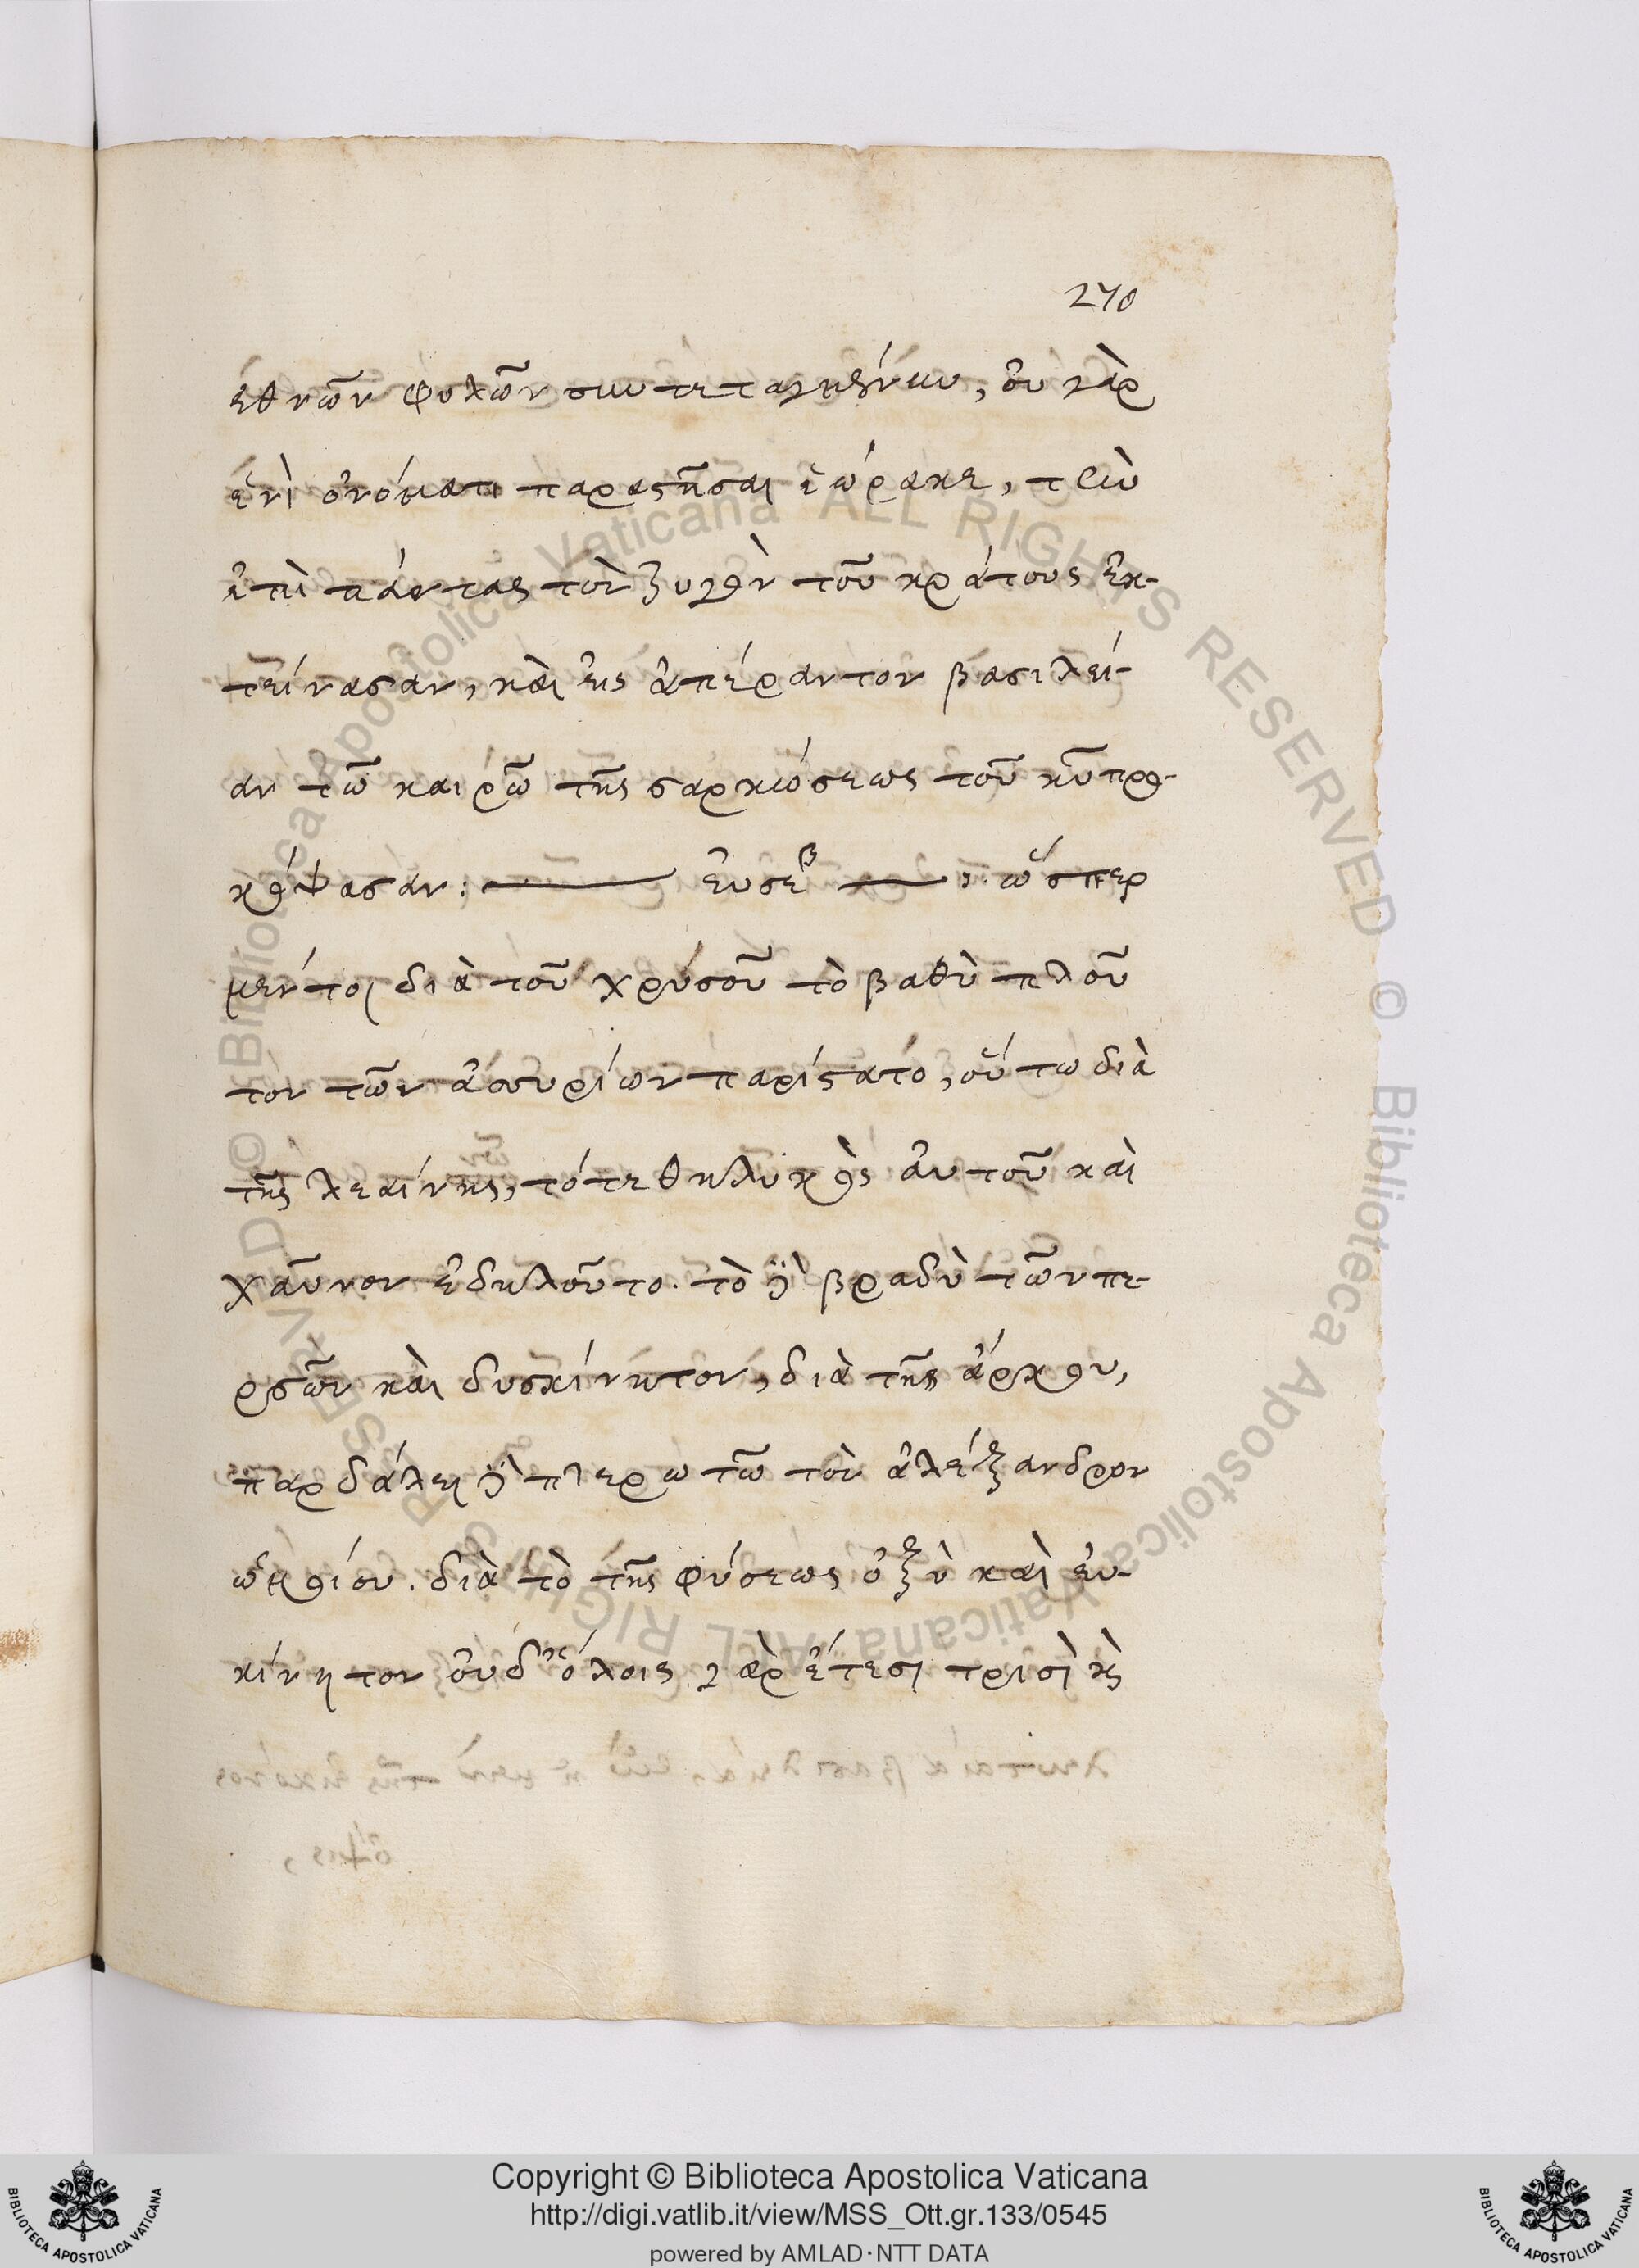 270
ἐθνῶν φυλῶν συντεταγμένην, οὐ γὰρ
ἑνὶ ὀνόματι παραστῆσαι ἑώρακε, τὴν
ἐπὶ πάντας τὸν ζυγὸν τοῦ κράτους ἐκ-
τείνασαν, καὶ εἰς ἀπέραντον βασιλεί-
αν τῶ καιρῶ τῆς σαρκώσεως τοῦ κυ προ-
κόψασαν: εὐσεβ : ὥσπερ
μέντοι διὰ τοῦ χρύσοῦ τὸ βαθὺ πλοῦ
τον τῶν ἀσυρίων παρίστατο, οὕτω διὰ
τῆς λεαίνης, τότε θηλυκὸς αὐτοῦ καὶ
χαῦνον ἐδηλοῦτο. τὸ δὲ βραδὺ τῶν πε-
ρσῶν καὶ δυσκίνητον, διὰ τῆς ἄρκου,
παρδάλει δὲ πτερωτῶ τὸν ἀλέξανδρον
ὡμοίου. διὰ τὸ τῆς φύσεως ὀξὺ καὶ εὐ-
κίνητον οὐδ' ὅλοις γὰρ ἔτεσι τρισὶ κς
Copyright © Biblioteca Apostolica Vaticana
http://digi.vatlib.it/view/MSS_Ott.gr.133/0545
powered by AMLAD·NTT DATA
BIBLIOTECA APOSTOLICA VATICANA
BIBLIOTECA APOSTOLICA VATICANA
© Biblioteca Apostolica Vaticana ALL RIGHTS RESERVED
© Biblioteca Apostolica Vaticana ALL RIGHTS RESERVED